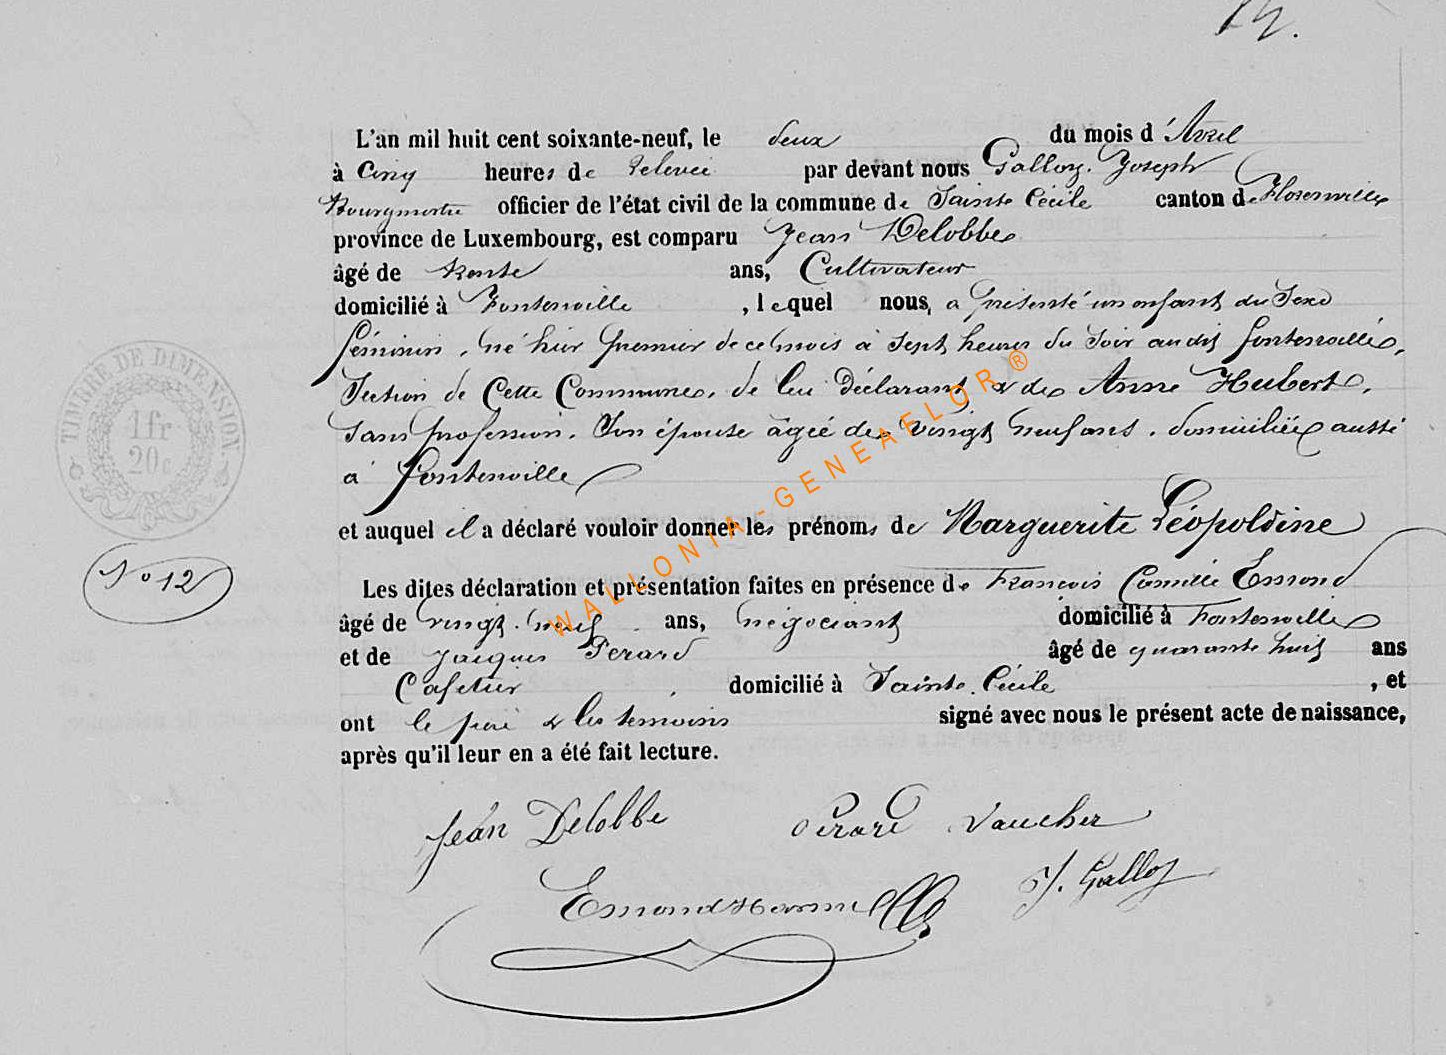 L'an mil huit cent soixante-neuf, le deux du mois d'Avril
à Cinq heures de relevée par devant nous Galloy Joseph
Bourgmestre officier de l'état civil de la commune de Sainte Cécile canton de Florenville
province de Luxembourg, est comparu Jean Delobbe
âgé de trente ans, Cultivateur
domicilié à Fontenoille, lequel nous a présenté un enfant du Sexe
féminin, né hier premier de ce mois à Sept heures du Soir audit fontenoille,
Section de Cette Commune, de lui Déclarant & de Anne Hubert,
Sans profession, Son épouse âgée de vingt neuf ans, domiciliée aussi
à fontenoille
et auquel il a déclaré vouloir donner les prénoms de Marguerite Léopoldine
N° 12
Les dites déclaration et présentation faites en présence de François Camille Emond
âgé de vingt-neuf ans, négociant domicilié à Fontenoille
et de Jacques Perard âgé de quarante huit ans
Cafetier domicilié à Sainte Cécile, et
ont le père & les témoins signé avec nous le présent acte de naissance,
après qu'il leur en a été fait lecture.
Jean Delobbe Perard Vaucher
Emond J. Galloy
TIMBRE DE DIMENSION
1fr
20c
WALLONIA-GENEAFLOR®